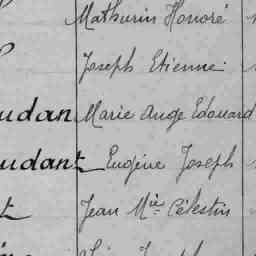 Mathurin Honoré
Joseph Etienne
udan Marie Ange Edouard
udant Eugène Joseph
t Jean Mie Célestin